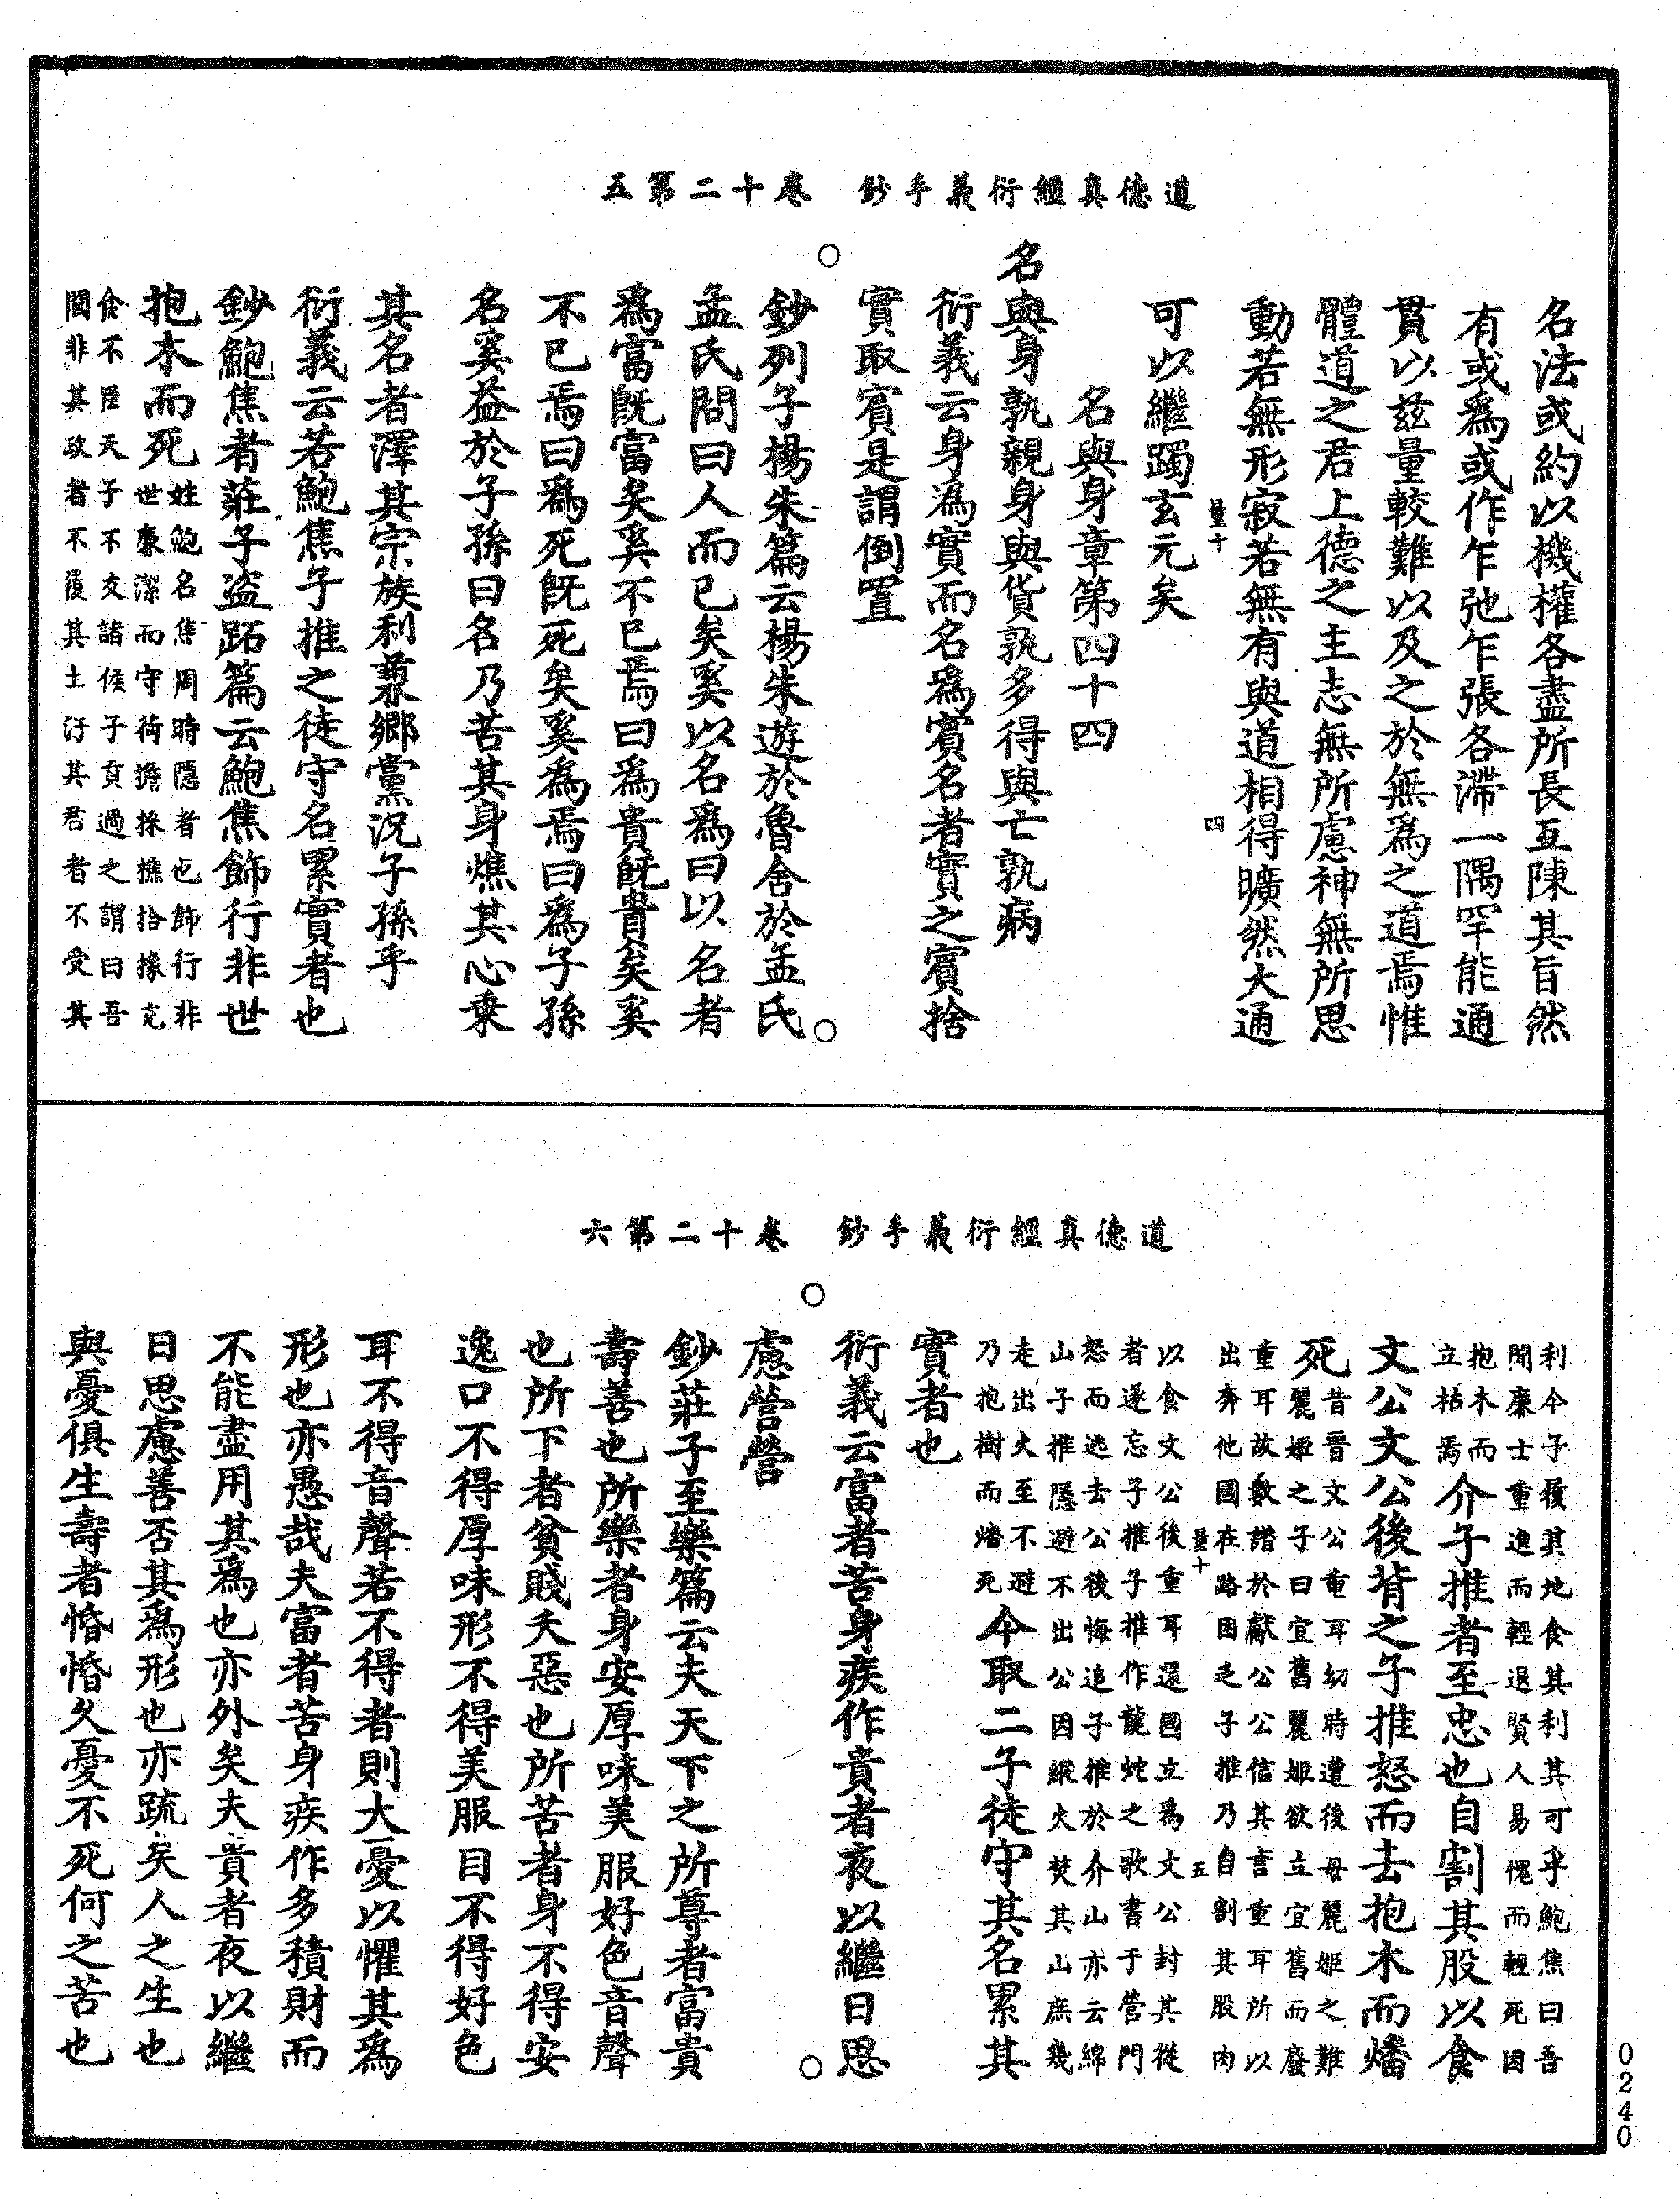 道德真經衍義手鈔　卷十二第五
名法或約以機權各盡所長互陳其旨然
有或爲或作乍弛乍張各滯一隅罕能通
貫以兹量較難以及之於無爲之道焉惟
體道之君上德之主志無所慮神無所思
動若無形寂若無有與道相得曠然大通
量十　四
可以繼躅玄元矣
名與身章第四十四
名與身孰親身與貨孰多得與亡孰病
衍義云身爲實而名爲賓名者實之賓捨
實取賓是謂倒置
鈔列子楊朱篇云楊朱遊於魯舍於孟氏
孟氏問曰人而已矣奚以名爲曰以名者
爲富既富矣奚不已焉曰爲貴既貴矣奚
不已焉曰爲死既死矣奚爲焉曰爲子孫
名奚益於子孫曰名乃苦其身燋其心乗
其名者澤其宗族利兼郷黨況子孫乎
衍義云若鮑焦子推之徒守名累實者也
鈔鮑焦者莊子盜跖篇云鮑焦飾行非世
抱木而死姓鮑名焦周時隱者也飾行非
世廉潔而守荷擔採樵拾橡充
食不臣天子不友諸侯子貢過之謂曰吾
聞非其政者不履其土汙其君者不受其
道德真經衍義手鈔　卷十二第六
利今子履其地食其利其可乎鮑焦曰吾
聞廉士重進而輕退賢人易愧而輕死因
抱木而
立枯焉介子推者至忠也自割其股以食
文公文公後背之子推怒而去抱木而燔
死昔晉文公重耳幼時遭後母麗姬之難
麗姬之子曰宜舊麗姬欲立宜舊而廢
重耳故數譖於獻公公信其言重耳所以
出奔他國在路困乏子推乃自割其股肉
量十　五
以食文公後重耳還國立爲文公封其從
者遂忘子推子推作龍蛇之歌書于營門
怒而逃去公後悔追子推於介山亦云綿
山子推隱避不出公因縱火焚其山庶幾
走出火至不避
乃抱樹而燔死今取二子徒守其名累其
實者也
衍義云富者苦身疾作貴者夜以繼日思
慮營營
鈔莊子至樂篇云夫天下之所尊者富貴
壽善也所樂者身安厚味美服好色音聲
也所下者貧賤夭惡也所苦者身不得安
逸口不得厚味形不得美服目不得好色
耳不得音聲若不得者則大憂以懼其爲
形也亦愚哉夫富者苦身疾作多積財而
不能盡用其爲也亦外矣夫貴者夜以繼
日思慮善否其爲形也亦疏矣人之生也
與憂俱生壽者惛惛久憂不死何之苦也
0240